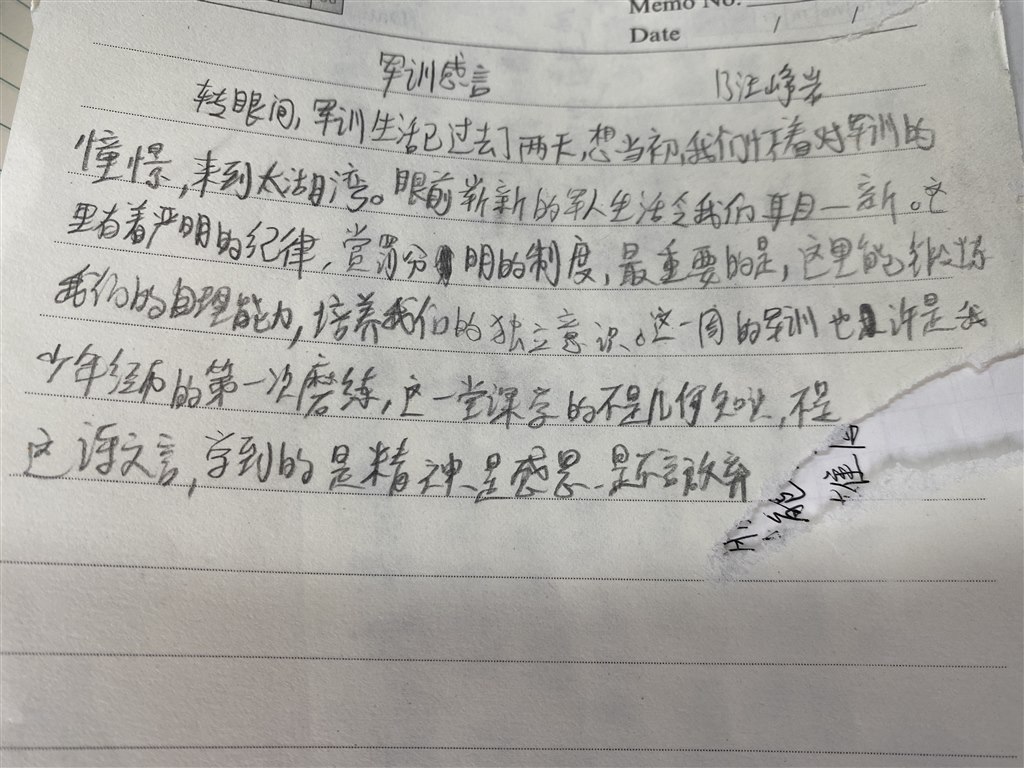 Memo No.
Date / /
军训感言 汪峥岩
转眼间,军训生活已过去了两天,想当初,我们怀着对军训的
憧憬,来到太湖湾。眼前崭新的军人生活令我们耳目一新。这
里有着严明的纪律,赏罚分明的制度,最重要的是,这里能锻炼
我们的自理能力,培养我们的独立意识。这一周的军训也许是我
少年经历的第一次磨练,这一堂课学的不是几何知识,不是
这课文言,学到的是精神、是感恩、是不言放弃
能